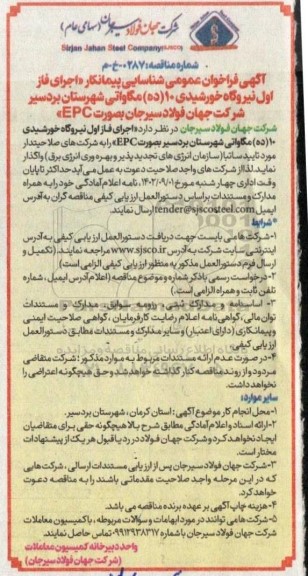 شرکت جهان فولاد سیرجان (سهامی عام)
Sirjan Jahan Steel Company(SJSCO)
شماره مناقصه: ۰۲۸۷-خ-م
آگهی فراخوان عمومی شناسایی پیمانکار «اجرای فاز
اول نیروگاه خورشیدی ۱۰ (ده) مگاواتی شهرستان بردسیر
شرکت جهان فولاد سیرجان بصورت EPC»
شرکت جهان فولاد سیرجان در نظر دارد «اجرای فاز اول نیروگاه خورشیدی
۱۰ (ده) مگاواتی شهرستان بردسیر بصورت EPC» را به شرکت های صلاحیتدار
مورد تایید ساتبا (سازمان انرژی های تجدید پذیر و بهره وری انرژی برق) واگذار
نماید. لذا از شرکت های واجد صلاحیت دعوت به عمل می آید حداکثر تا پایان
وقت اداری چهار شنبه مورخ ۱۴۰۲/۰۹/۰۱، نامه اعلام آمادگی خود را به همراه
مدارک و مستندات بر اساس دستورالعمل ارزیابی کیفی مناقصه گران به آدرس
ایمیل tender@sjscosteel.com ارسال نمایند.
«شرایط
۱-شرکت ها می بایست جهت دریافت دستورالعمل ارزیابی کیفی به آدرس
اینترنتی سایت شرکت به آدرس www.sjsco.ir مراجعه نمایند. (تکمیل و
ارسال فرم دستورالعمل مذکور به منظور ارزیابی کیفی الزامی است.)
۲-درخواست رسمی با ذکر شماره و موضوع مناقصه (اعلام آدرس ایمیل، شماره
تلفن ثابت و همراه الزامی است.)
۳- اساسنامه و مدارک ثبتی، رزومه، سوابق، مدارک و مستندات
توان مالی، گواهی نامه اعلام رضایت کارفرمایان، گواهی صلاحیت ایمنی
و پیمانکاری (دارای اعتبار) و سایر مدارک و مستندات مطابق دستورالعمل
ارزیابی کیفی
۴-در صورت عدم ارائه مستندات مربوط به موارد مذکور: شرکت متقاضی
مردود و از روند مناقصه کنار گذاشته خواهد شد و حق هیچگونه اعتراضی را
نخواهد داشت.
سایر موارد:
۱-محل انجام کار موضوع آگهی: استان کرمان، شهرستان بردسیر.
۲-ارائه اسناد و اعلام آمادگی مطابق شرح بالا هیچگونه حقی برای متقاضیان
ایجاد نخواهد کرد و شرکت جهان فولاد در رد یا قبول هر یک از پیشنهادات
مختار است.
۳-شرکت جهان فولاد سیرجان پس از ارزیابی مستندات ارسالی، شرکت هایی
که در این مرحله واجد صلاحیت مقدماتی باشند را به مناقصه دعوت
خواهد کرد.
۴-هزینه چاپ آگهی بر عهده برنده مناقصه می باشد.
۵-شرکت ها می توانند در مورد ابهامات و سؤالات مربوطه، با کمیسیون معاملات
شرکت جهان فولاد سیرجان با شماره ۰۹۹۱۲۹۳۸۳۱۷ تماس حاصل نمایند.
واحد دبیرخانه کمیسیون معاملات
(شرکت جهان فولاد سیرجان)